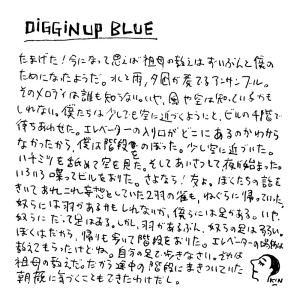 DiGGiN UP BLUE
たまげた！今になって思えば祖母の教えはずいぶんと僕の
ためになったようだ。そして雨、夕凪が奏でるアンサンブル。
そのメロディは誰も知らない。いや、風や空は知っているかも
しれない。僕たちは少しでも空に近づくようにと、ビルの下階で
待ちあわせた。エレベーターの入り口がどこにあるのかわから
なかったから、僕は階段をのぼった。少し空に近づいた。
ハチミツを舐めて空を見た。そしてあいさつして夜が始まった。
いろいろ喋ってビルをおりた。さよなら！友よ。ぼくたちの話を
きいてあれこれ妄想としていた2羽の雀も、ねぐらに帰っていた。
奴らには羽があるかもしれないが、僕らには足がある。いや、
奴らにだって足はある。しかし、羽があるぶん、奴らの足は弱い。
ぼくはだから、帰りも歩いて階段をおりた。エレベーターの場所は
教えてもらったけどね。自分の足で歩きなさい。それは
祖母の教えだ。だから途中の階段にまきついていた
朝顔に気づくこともできたわけだし。